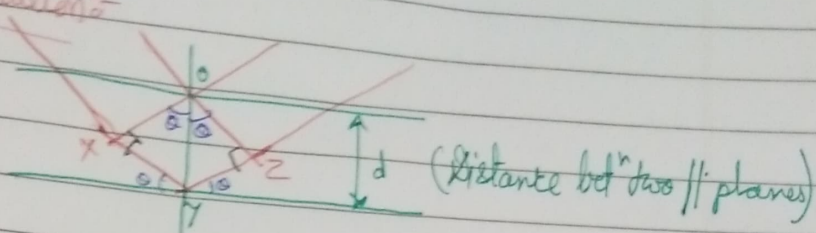 O
θ θ
X
Z
d (Distance betⁿ two || planes)
θ θ
Y